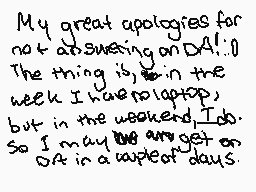 My great apologies for
not answering on DA!:0
The thing is, in the
week I have no laptop,
but in the weekend, I do.
So I may get on
DA in a couple of days.